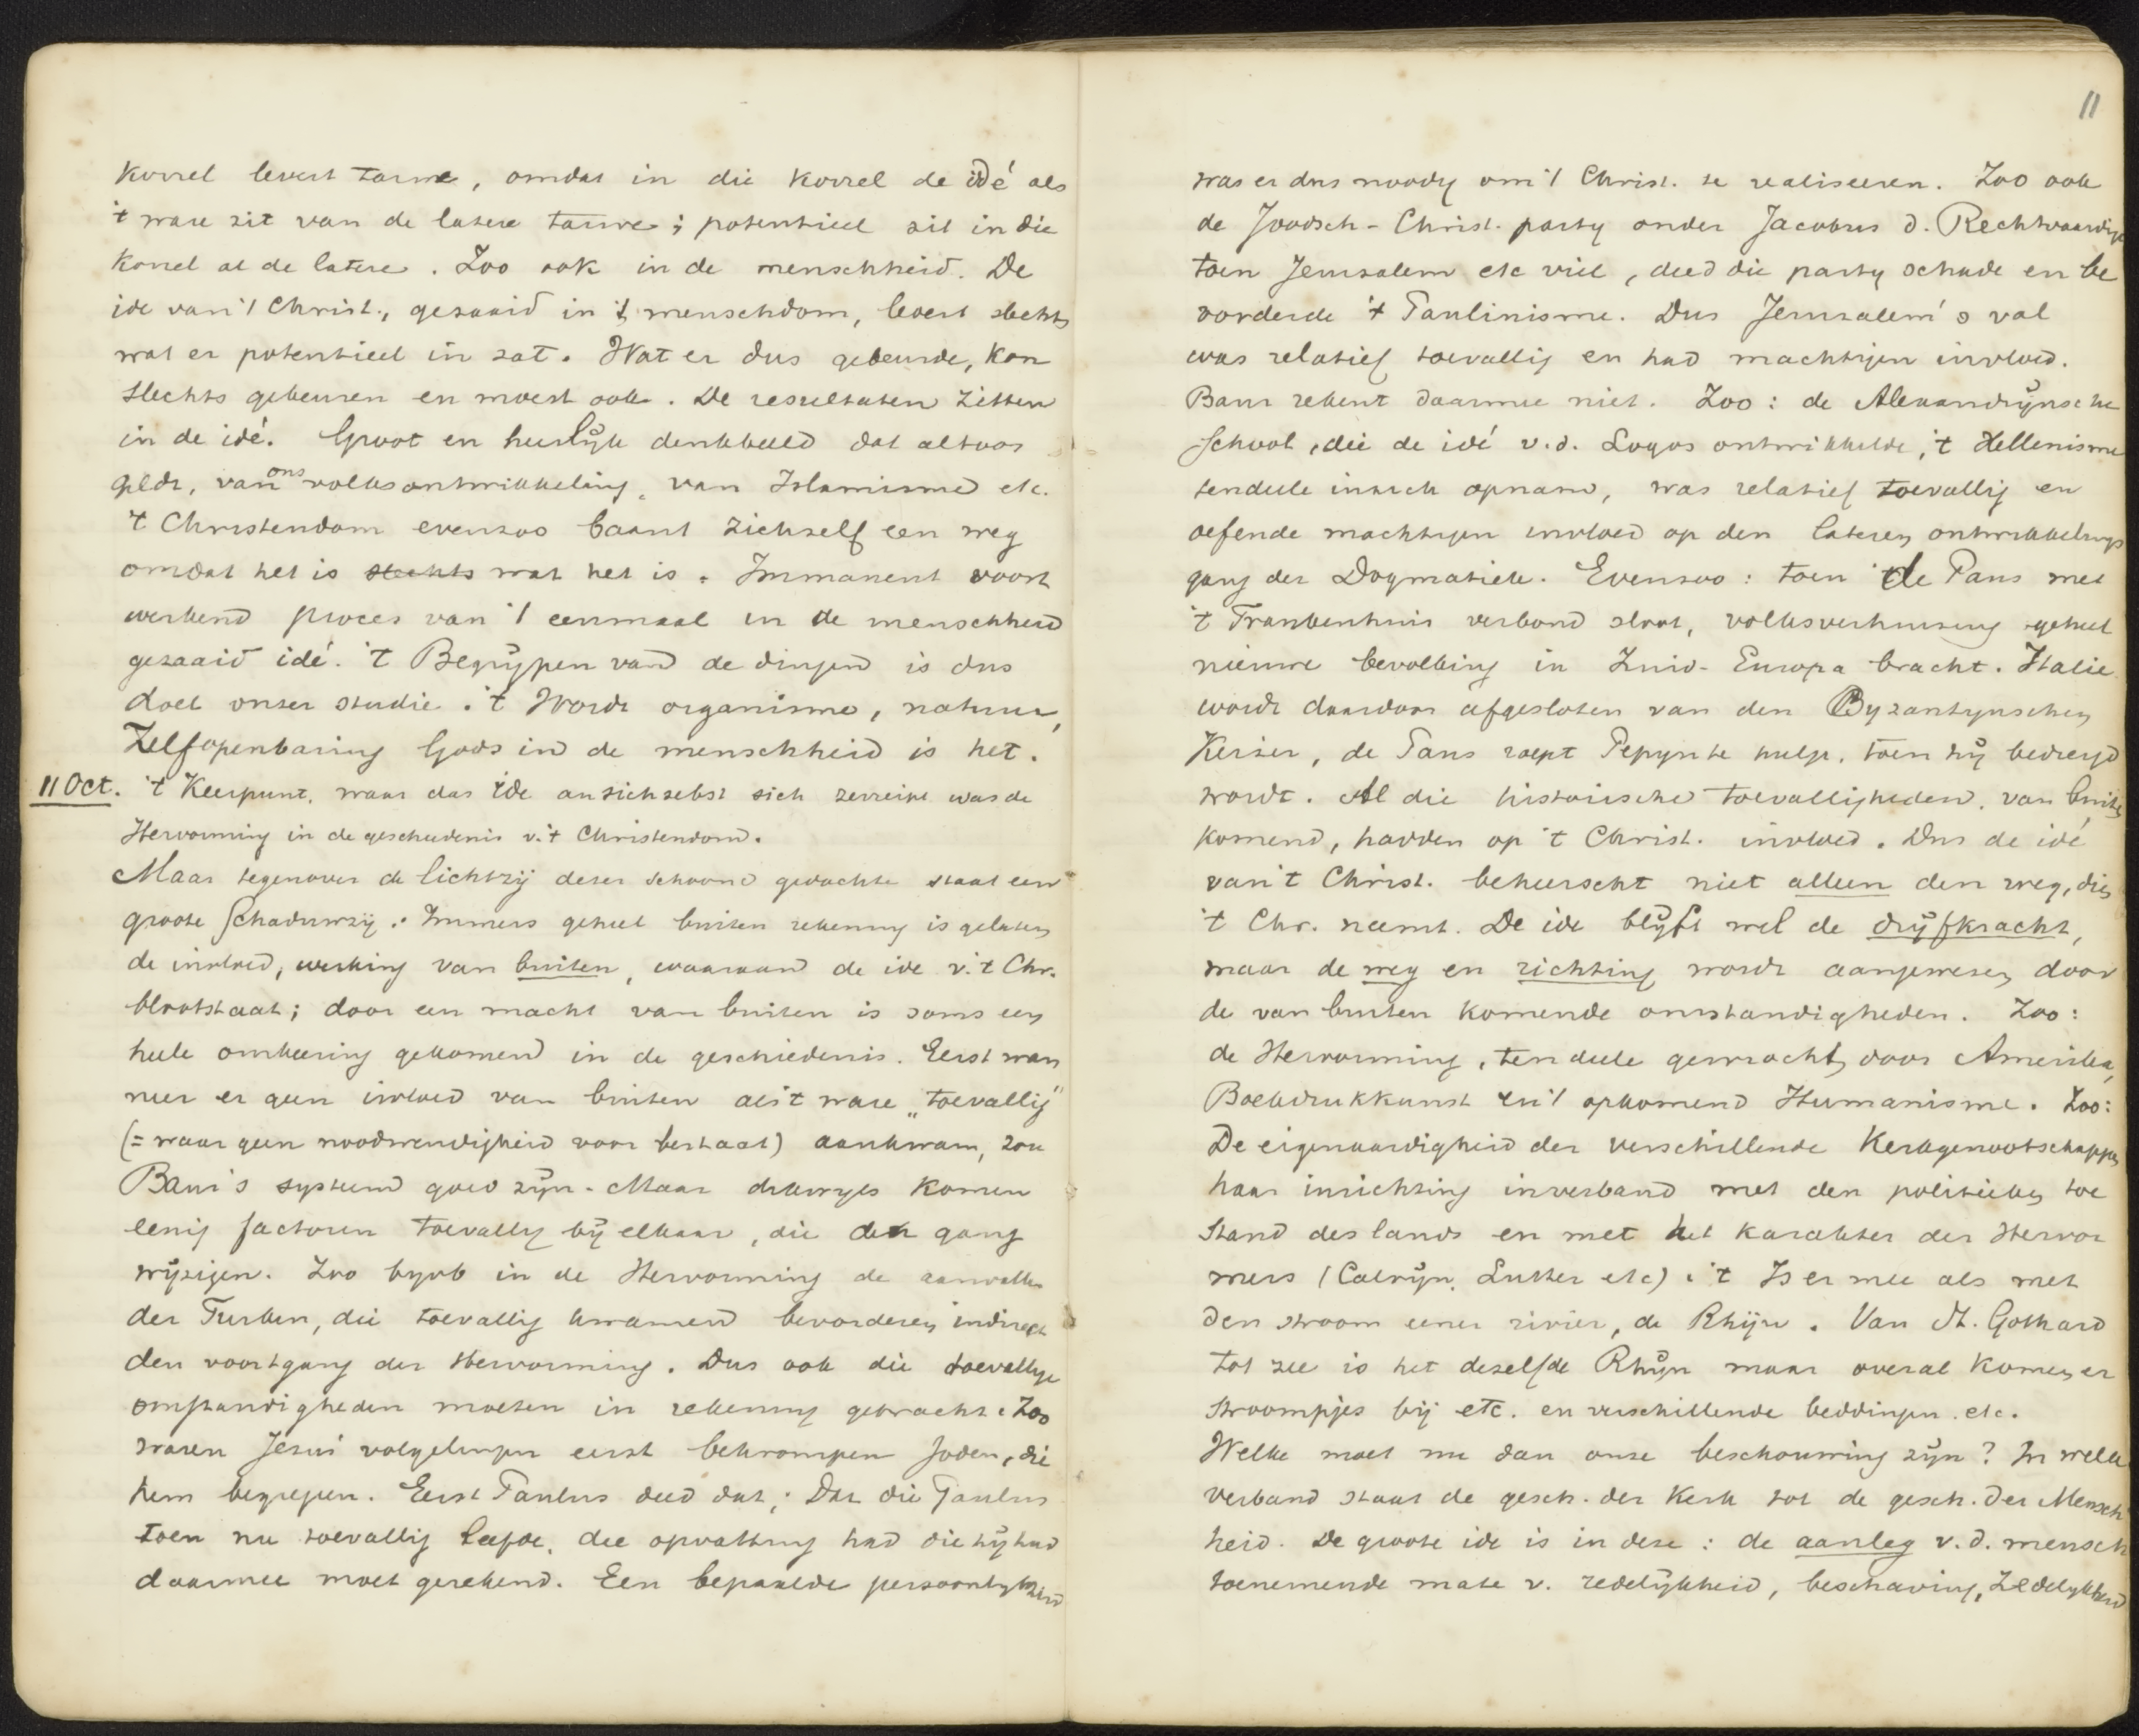 korrel levert tarwe, omdat in die korrel de idé als
't ware zit van de latere tarwe; potentieel zit in die
korrel al de latere. Zoo ook in de menschheid. De
ide van 't Christ., gezaaid in 't menschdom, levert slechts
wat er potentieel in zat. Wat er dus gebeurde, kon
slechts gebeuren en moest ook. De resultaten zitten
in de idé. Groot en heerlijk denkbeeld dat altoos
geldt, van ons volksontwikkeling, van Islamisme etc.
't Christendom evenzoo baant zichzelf een weg
omdat het is slechts wat het is. Immanent voort
werkend proces van 't eenmaal in de menschheid
gezaaid idé. 't Begrijpen van de dingen is dus
doel onzer studie. 't Wordt organisme, natuur,
Zelfopenbaring Gods in de menschheid is het.
11 Oct. 't Keerpunt, waar das Ide an sich selbst sich zerreint was de
Hervorming in de geschiedenis v. 't Christendom.
Maar tegenover de lichtzij dezer schoone gedachte staat een
groote schaduwzij: Immers geheel buiten rekening is gelaten
de invloed, werking van buiten, waaraan de ide v. 't Chr.
blootstaat; door een macht van buiten is soms een
heele omkeering gekomen in de geschiedenis. Eerst wan
neer er geen invloed van buiten als 't ware „toevallig"
(= waar geen noodwendigheid voor bestaat) aankwam, zou
Baur's systeem goed zijn. Maar dikwijls komen
eenig factoren toevallig bij elkaar, die den gang
wijzigen. Zoo byvb in de Hervorming de aanvallen
der Turken, die toevallig kwamen bevorderen indirect
den voortgang der Hervorming. Dus ook die toevallige
omstandigheden moeten in rekening gebracht. Zoo
waren Jesus' volgelingen eerst bekrompen Joden, die
hem begrepen. Eerst Paulus deed dat; Dat die Paulus
toen nu toevallig leefde, die opvatting had die hij had
daarmee moet gerekend. Een bepaalde persoonlykheid
11
was er dus noodig om 't Christ. te realiseeren. Zoo ook
de Joodsch-Christ. party onder Jacobus d. Rechtvaardige
toen Jerusalem etc viel, deed die party schade en be
vorderde 't Paulinisme. Dus Jerusalem's val
was relatief toevallig en had machtigen invloed.
Baur rekent daarmee niet. Zoo: de Alexandrijnsche
School, die de idé v.d. Logos ontwikkelde, 't Hellenisme
tendeele in zich opnam, was relatief toevallig en
oefende machtigen invloed op den lateren ontwikkelings
gang der Dogmatiek. Evenzoo: toen de Paus met
't Frankenhuis verbond sloot, volksverhuizing geheel
nieuwe bevolking in Zuid-Europa bracht. Italie
wordt daardoor afgesloten van den Byzantynschen
Keizer, de Paus roept Pepyn te hulp, toen hij bedreigd
wordt. Al die historische toevalligheden, van buiten
komend, hadden op 't Christ. invloed. Dus de idé
van 't Christ. beheerscht niet alleen den weg, dien
't Chr. neemt. De ide blijft wel de drijfkracht,
maar de weg en richting wordt aangewezen door
de van buiten komende omstandigheden. Zoo:
de Hervorming, tendeele gewracht door Amerika,
Boekdrukkunst en 't opkomend Humanisme. Zoo:
De eigenaardigheid der verschillende Kerkgenootschappen
haar inrichting in verband met den politieken toe
stand des lands en met het karakter der Hervor
mers (Calvijn, Luther etc). 't Is er mee als met
den stroom eener rivier, de Rhijn. Van St. Gothard
tot zee is het dezelfde Rhijn maar overal komen er
stroompjes bij etc. en verschillende beddingen etc.
Welke moet nu dan onze beschouwing zijn? In welk
verband staat de gesch. der Kerk tot de gesch. der Mensch
heid. De groote ide is in deze: de aanleg v.d. mensch
toenemende mate v. redelijkheid, beschaving, Zedelykheid